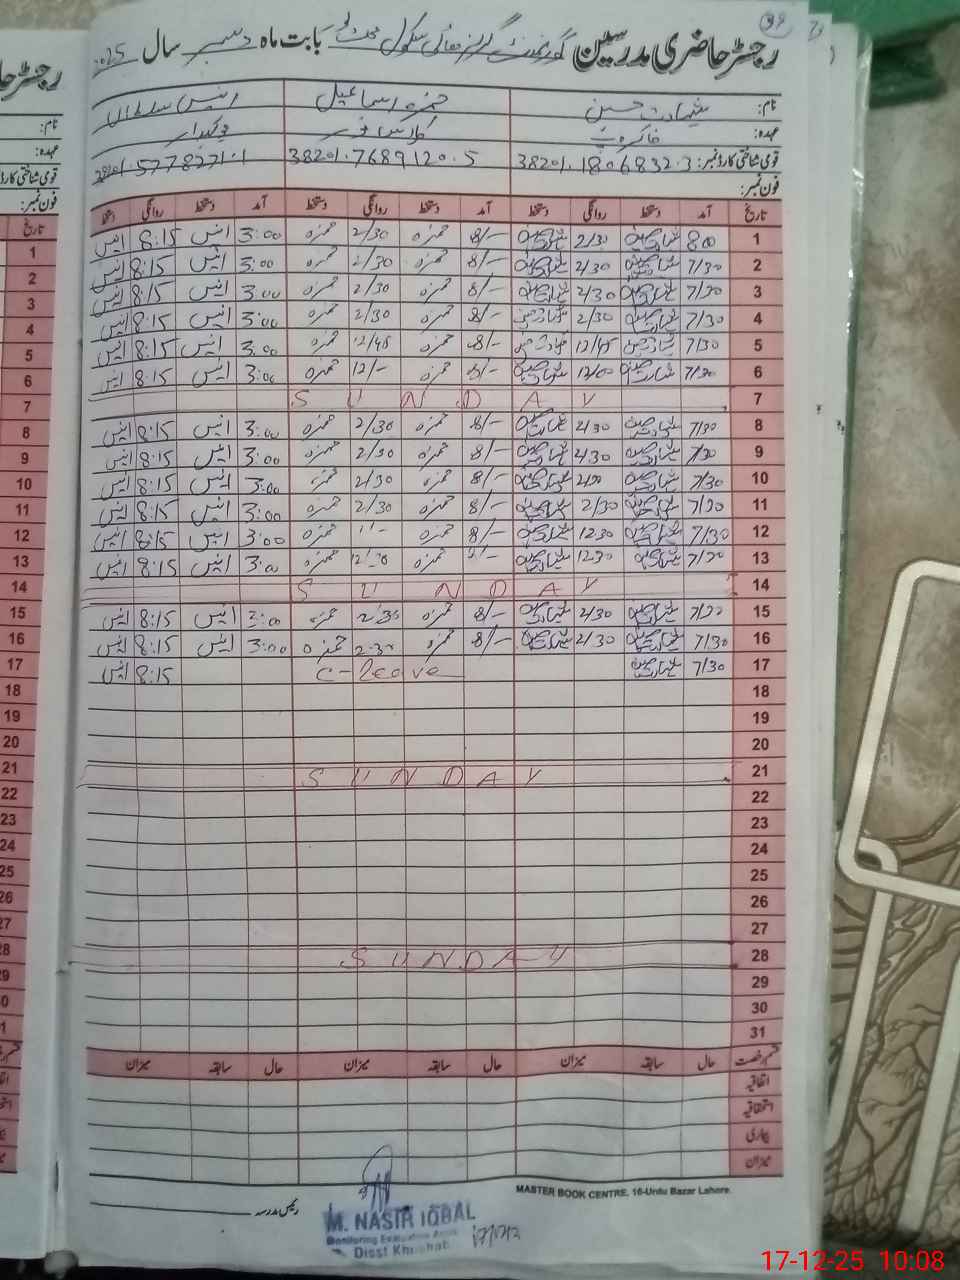 36
رجسٹر حاضری مدرسین گورنمنٹ گرلز ہائی سکول بابت ماہ دسمبر سال 2025
نام: شہادت حسین حمزہ اسماعیل انیس
عہدہ: خاکروب چوکیدار
قومی شناختی کارڈ نمبر: 38201.1806832.3 38201.7689120.5 38201.5778271.1
فون نمبر:
تاریخ آمد دستخط روانگی دستخط آمد دستخط روانگی دستخط آمد دستخط روانگی دستخط
1 8:00 شہادت حسین 2/30 شہادت حسین 8/- حمزہ 2/30 حمزہ 3:00 انیس 8:15 انیس
2 7/30 شہادت حسین 2/30 شہادت حسین 8/- حمزہ 2/30 حمزہ 3:00 انیس 8:15 انیس
3 7/30 شہادت حسین 2/30 شہادت حسین 8/- حمزہ 2/30 حمزہ 3:00 انیس 8:15 انیس
4 7/30 شہادت حسین 2/30 شہادت حسین 8/- حمزہ 2/30 حمزہ 3:00 انیس 8:15 انیس
5 7/30 شہادت حسین 12/45 شہادت حسین 8/- حمزہ 12/45 حمزہ 3:00 انیس 8:15 انیس
6 7/30 شہادت حسین 12/00 شہادت حسین 8/- حمزہ 12/- حمزہ 3:00 انیس 8:15 انیس
7 SUNDAY
8 7/30 شہادت حسین 2/30 شہادت حسین 8/- حمزہ 2/30 حمزہ 3:00 انیس 8:15 انیس
9 7/30 شہادت حسین 2/30 شہادت حسین 8/- حمزہ 2/30 حمزہ 3:00 انیس 8:15 انیس
10 7/30 شہادت حسین شہادت حسین 8/- حمزہ 2/30 حمزہ 3:00 انیس 8:15 انیس
11 7/30 شہادت حسین 2/30 شہادت حسین 8/- حمزہ 2/30 حمزہ 3:00 انیس 8:15 انیس
12 7/30 شہادت حسین 1230 شہادت حسین 8/- حمزہ حمزہ 3:00 انیس 8:15 انیس
13 7/30 شہادت حسین 1230 شہادت حسین حمزہ حمزہ 3:00 انیس 8:15 انیس
14 SUNDAY
15 7/30 شہادت حسین 2/30 شہادت حسین 8/- حمزہ 2/30 حمزہ 3:00 انیس 8:15 انیس
16 7/30 شہادت حسین 2/30 شہادت حسین 8/- حمزہ 2:30 حمزہ 3:00 انیس 8:15 انیس
17 7/30 شہادت حسین C-Leave 8:15 انیس
18
19
20
21 SUNDAY
22
23
24
25
26
27
28 SUNDAY
29
30
31
قسم رخصت حال سابقہ میزان حال سابقہ میزان حال سابقہ میزان
اتفاقیہ
استحقاقیہ
بیماری
میزان
MASTER BOOK CENTRE, 16-Urdu Bazar Lahore.
رئیس مدرسہ
M. NASIR IQBAL
Monitoring Evaluation
Disst Khushab
17-12-25 10:08